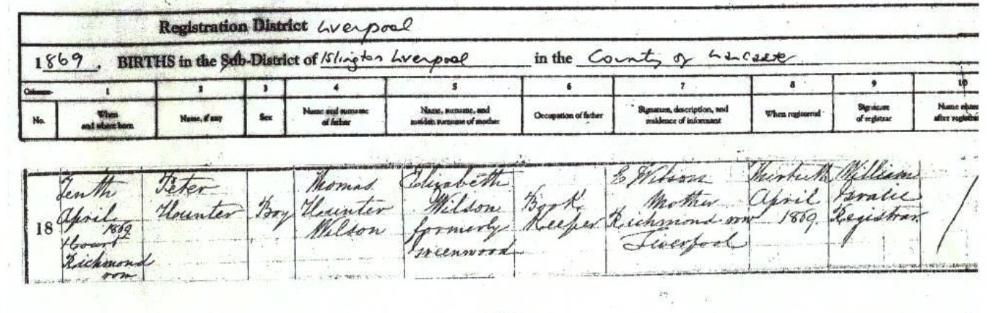 Registration District Liverpool
1869. BIRTHS in the Sub-District of Islington Liverpool in the County of Lancaster
Columns:- 1 2 3 4 5 6 7 8 9 10
No. When and where born Name, if any Sex Name and surname of father Name, surname, and maiden surname of mother Occupation of father Signature, description, and residence of informant When registered Signature of registrar Name entered after registration
Tenth Peter Thomas Elizabeth E Wilson Thirtieth William
18 April Haunter Boy Haunter Wilson Book Mother April Registrar
1869 Wilson formerly Keeper Richmond row 1869
Court Greenwood Liverpool
Richmond
row